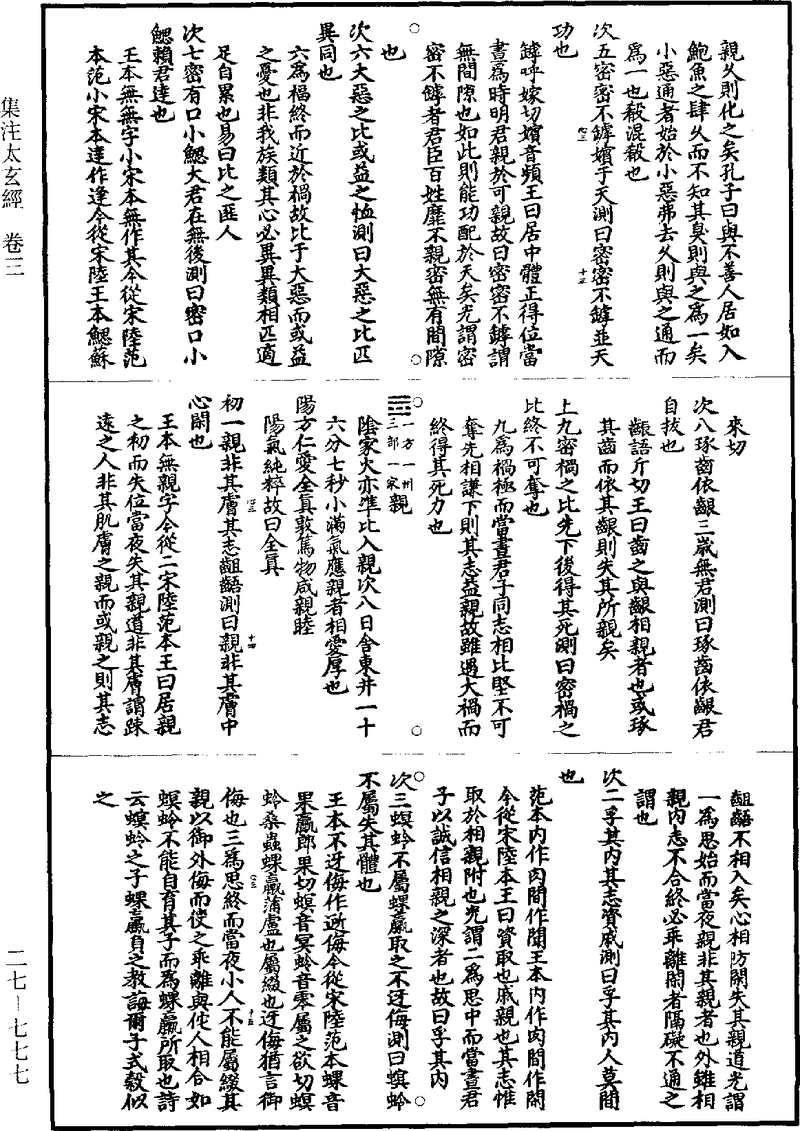 集注太玄經 卷三
親久則化之矣孔子曰與不善人居如入
鮑魚之肆久而不知其臭則與之爲一矣
小惡通者始於小惡弗去久則與之通而
爲一也殽混殽也
次五密密不罅嬪于天測曰密密不罅並天
功也
罅呼嫁切嬪音頻王曰居中體正得位當
晝爲時明君親於可親故曰密密不罅謂
無間隙也如此則能功配於天矣光謂密
密不罅者君臣百姓靡不親密無有間隙
也
次六大惡之比或益之恤測曰大惡之比匹
異同也
六爲福終而近於禍故比于大惡而或益
之憂也非我族類其心必異異類相匹適
足自累也易曰比之匪人
次七密有口小鰓大君在無後測曰密口小
鰓賴君達也
王本無無字小宋本無作其今從宋陸范
本范小宋本達作逢今從宋陸王本鰓蘇
來切
次八琢齒依齦三歲無君測曰琢齒依齦君
自拔也
齦語斤切王曰齒之與齦相親者也或琢
其齒而依其齦則失其所親矣
上九密禍之比先下後得其死測曰密禍之
比終不可奪也
九爲禍極而當晝君子同志相比堅不可
奪先相謙下則其志益親故雖遇大禍而
終得其死力也
一方一州
三部一家
親
陰家火亦準比入親次八日舍東井一十
六分七秒小滿氣應親者相愛厚也
陽方仁愛全真敦篤物咸親睦
陽氣純粹故曰全真
初一親非其膚其志齟齬測曰親非其膚中
心閑也
王本無親字今從二宋陸范本王曰居親
之初而失位當夜失其親道非其膚謂踈
遠之人非其肌膚之親而或親之則其志
齟齬不相入矣心相防閑失其親道光謂
一爲思始而當夜親非其親者也外雖相
親內志不合終必乖離閑者隔礙不通之
謂也
次二孚其內其志資戚測曰孚其內人莫間
也
范本內作肉間作閑王本內作肉間作閑
今從宋陸本王曰資取也戚親也其志惟
取於相親附也光謂二爲思中而當晝君
子以誠信相親之深者也故曰孚其內
次三螟蛉不屬蜾蠃取之不迓侮測曰螟蛉
不屬失其體也
王本不迓侮作迺侮今從宋陸范本蜾音
果蠃郎果切螟音冥蛉音零屬之欲切螟
蛉桑蟲蜾蠃蒲盧也屬綴也迓侮猶言御
侮也三爲思終而當夜小人不能屬綴其
親以御外侮而使之乖離與佗人相合如
螟蛉不能自育其子而爲蜾蠃所取也詩
云螟蛉之子蜾蠃負之教誨爾子式榖似
之
二七—七七七